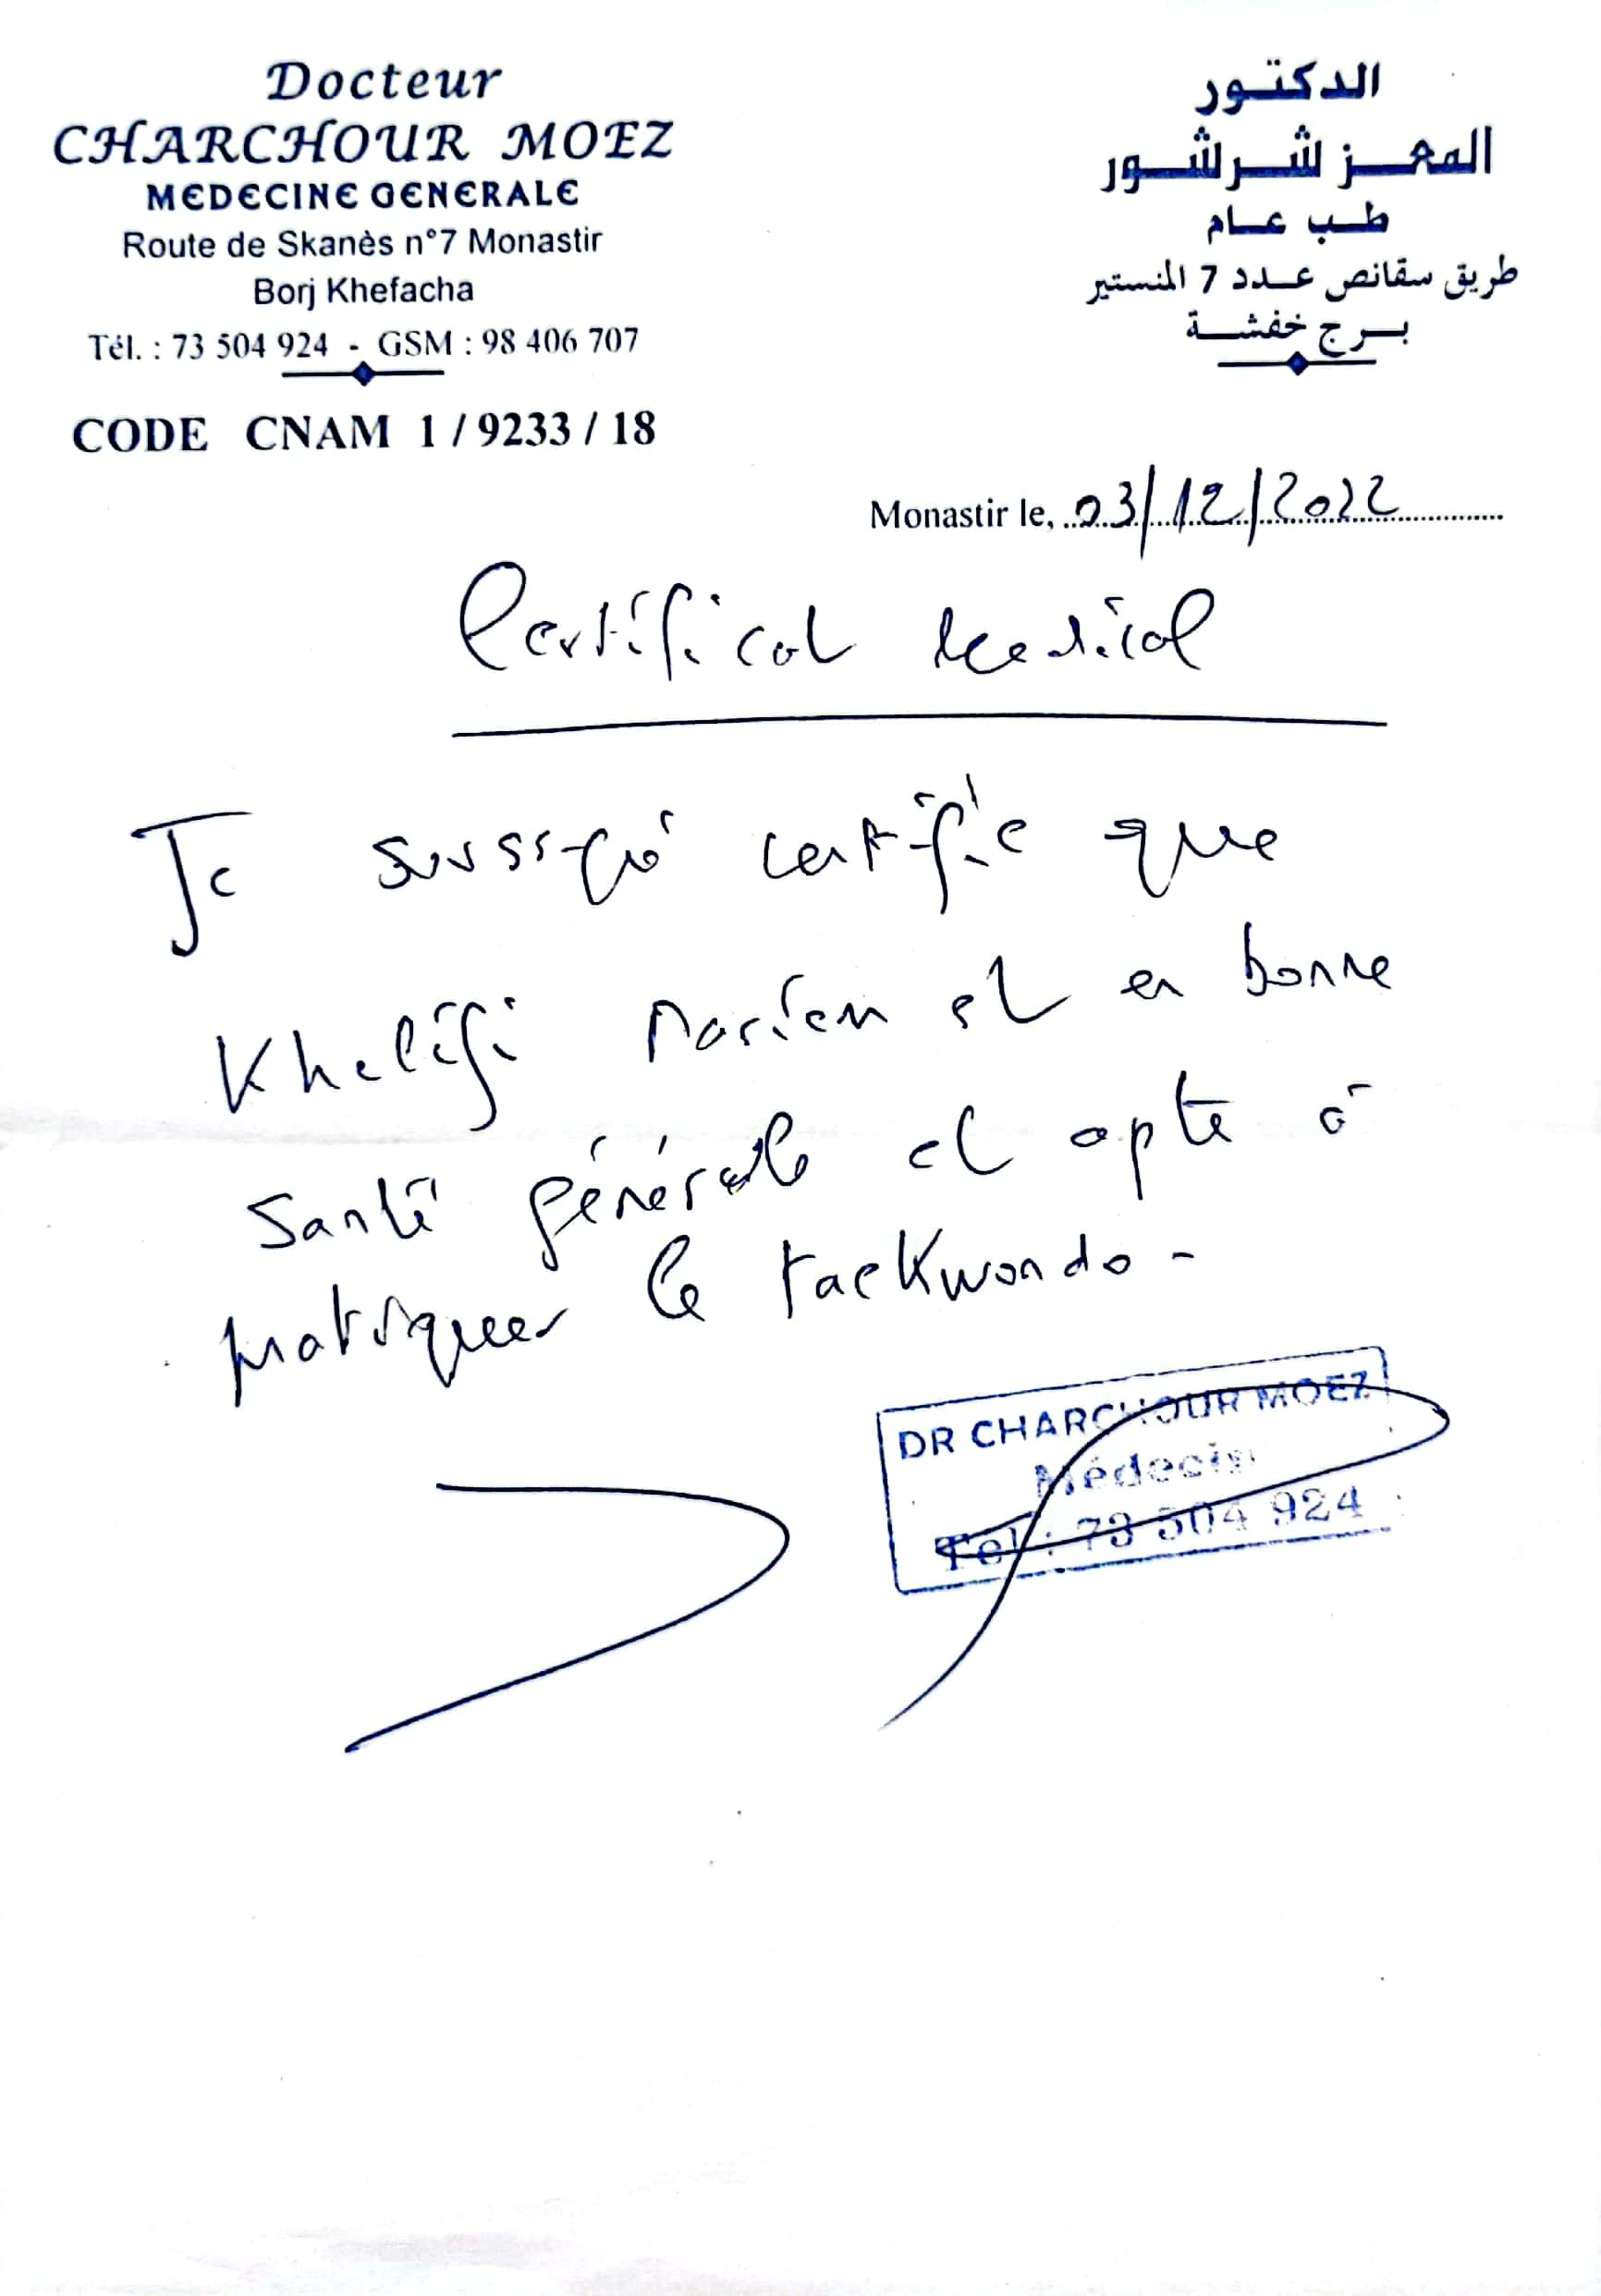 Docteur
CHARCHOUR MOEZ
MEDECINE GENERALE
Route de Skanès n°7 Monastir
Borj Khefacha
Tél. : 73 504 924 - GSM : 98 406 707
CODE CNAM 1 / 9233 / 18
الدكتور
المعز شرشور
طب عام
طريق سقانص عدد 7 المنستير
برج خفشة
Monastir le, 03/12/2022
Certificat medical
Je sussigné certifie que
Khelifi est en bonne
Santé générale et apte à
pratiquer le taekwondo -
DR CHARCHOUR MOEZ
Médecin
Tel : 73 504 924